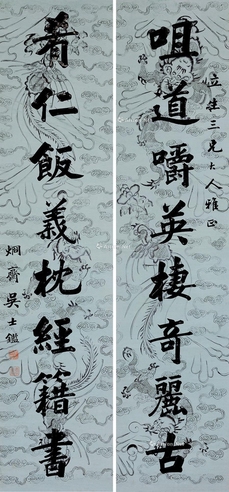 咀道嚼英棲奇麗古
肴仁飯義枕經籍書
三兄大人雅正
炯齋吳士鑑